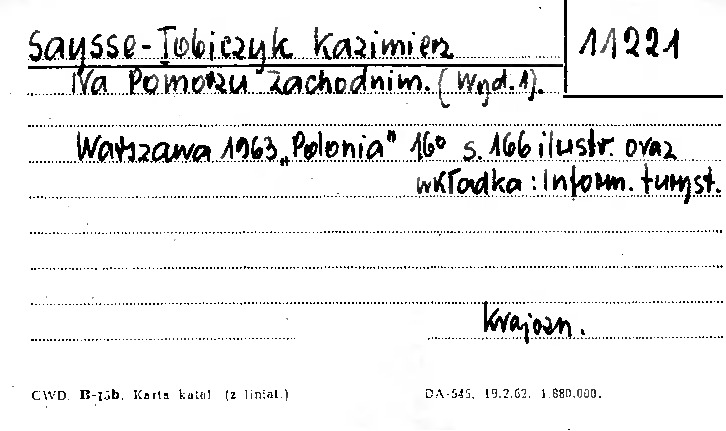 Saysse-Tobiczyk Kazimierz
11221
Na Pomorzu Zachodnim. (Wyd. 1).
Warszawa 1963 „Polonia" 16° s. 166 ilustr. oraz
wkładka: Inform. turyst.
Krajozn.
CWD. B-75b. Karta katal. (z liniat.)
DA-545. 19.2.62. 1.880.000.